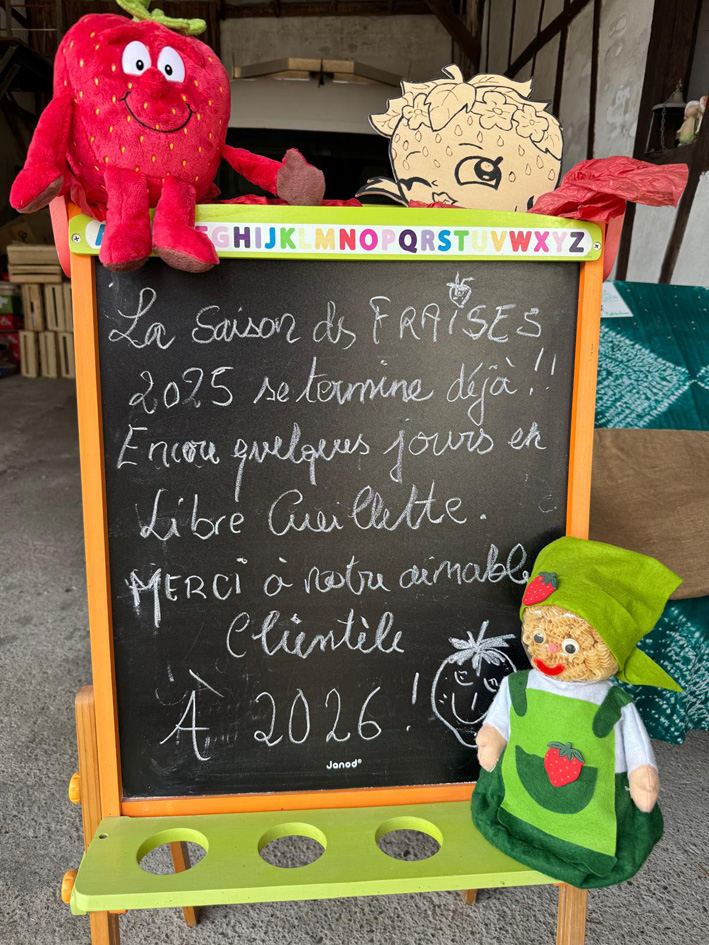 GHIJKLMNOPQRSTUVWXYZ
La Saison des FRAISES
2025 se termine déjà !!
Encore quelques jours en
Libre Cueillette.
MERCI à notre aimable
Clientèle
À 2026 !
Janod®